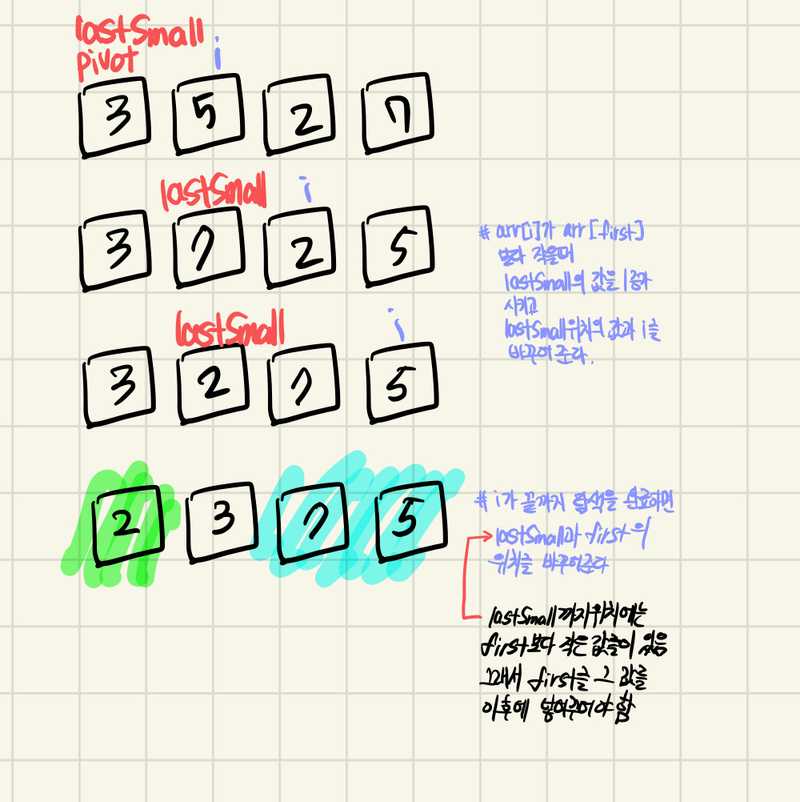 lastSmall
pivot i
3 5 2 7
lastSmall i
3 7 2 5
# arr[i]가 arr[first]
보다 작을때
lastSmall의 값을 1증가
시키고
lastSmall위치의 값과 i를
바꾸어 준다.
lastSmall i
3 2 7 5
2 3 7 5
# i가 끝까지 탐색을 완료하면
lastSmall과 first의
위치를 바꾸어준다
lastSmall까지위치에는
first보다 작은 값들이 있음
그래서 first를 그 값들
이후에 넣어주어야 함